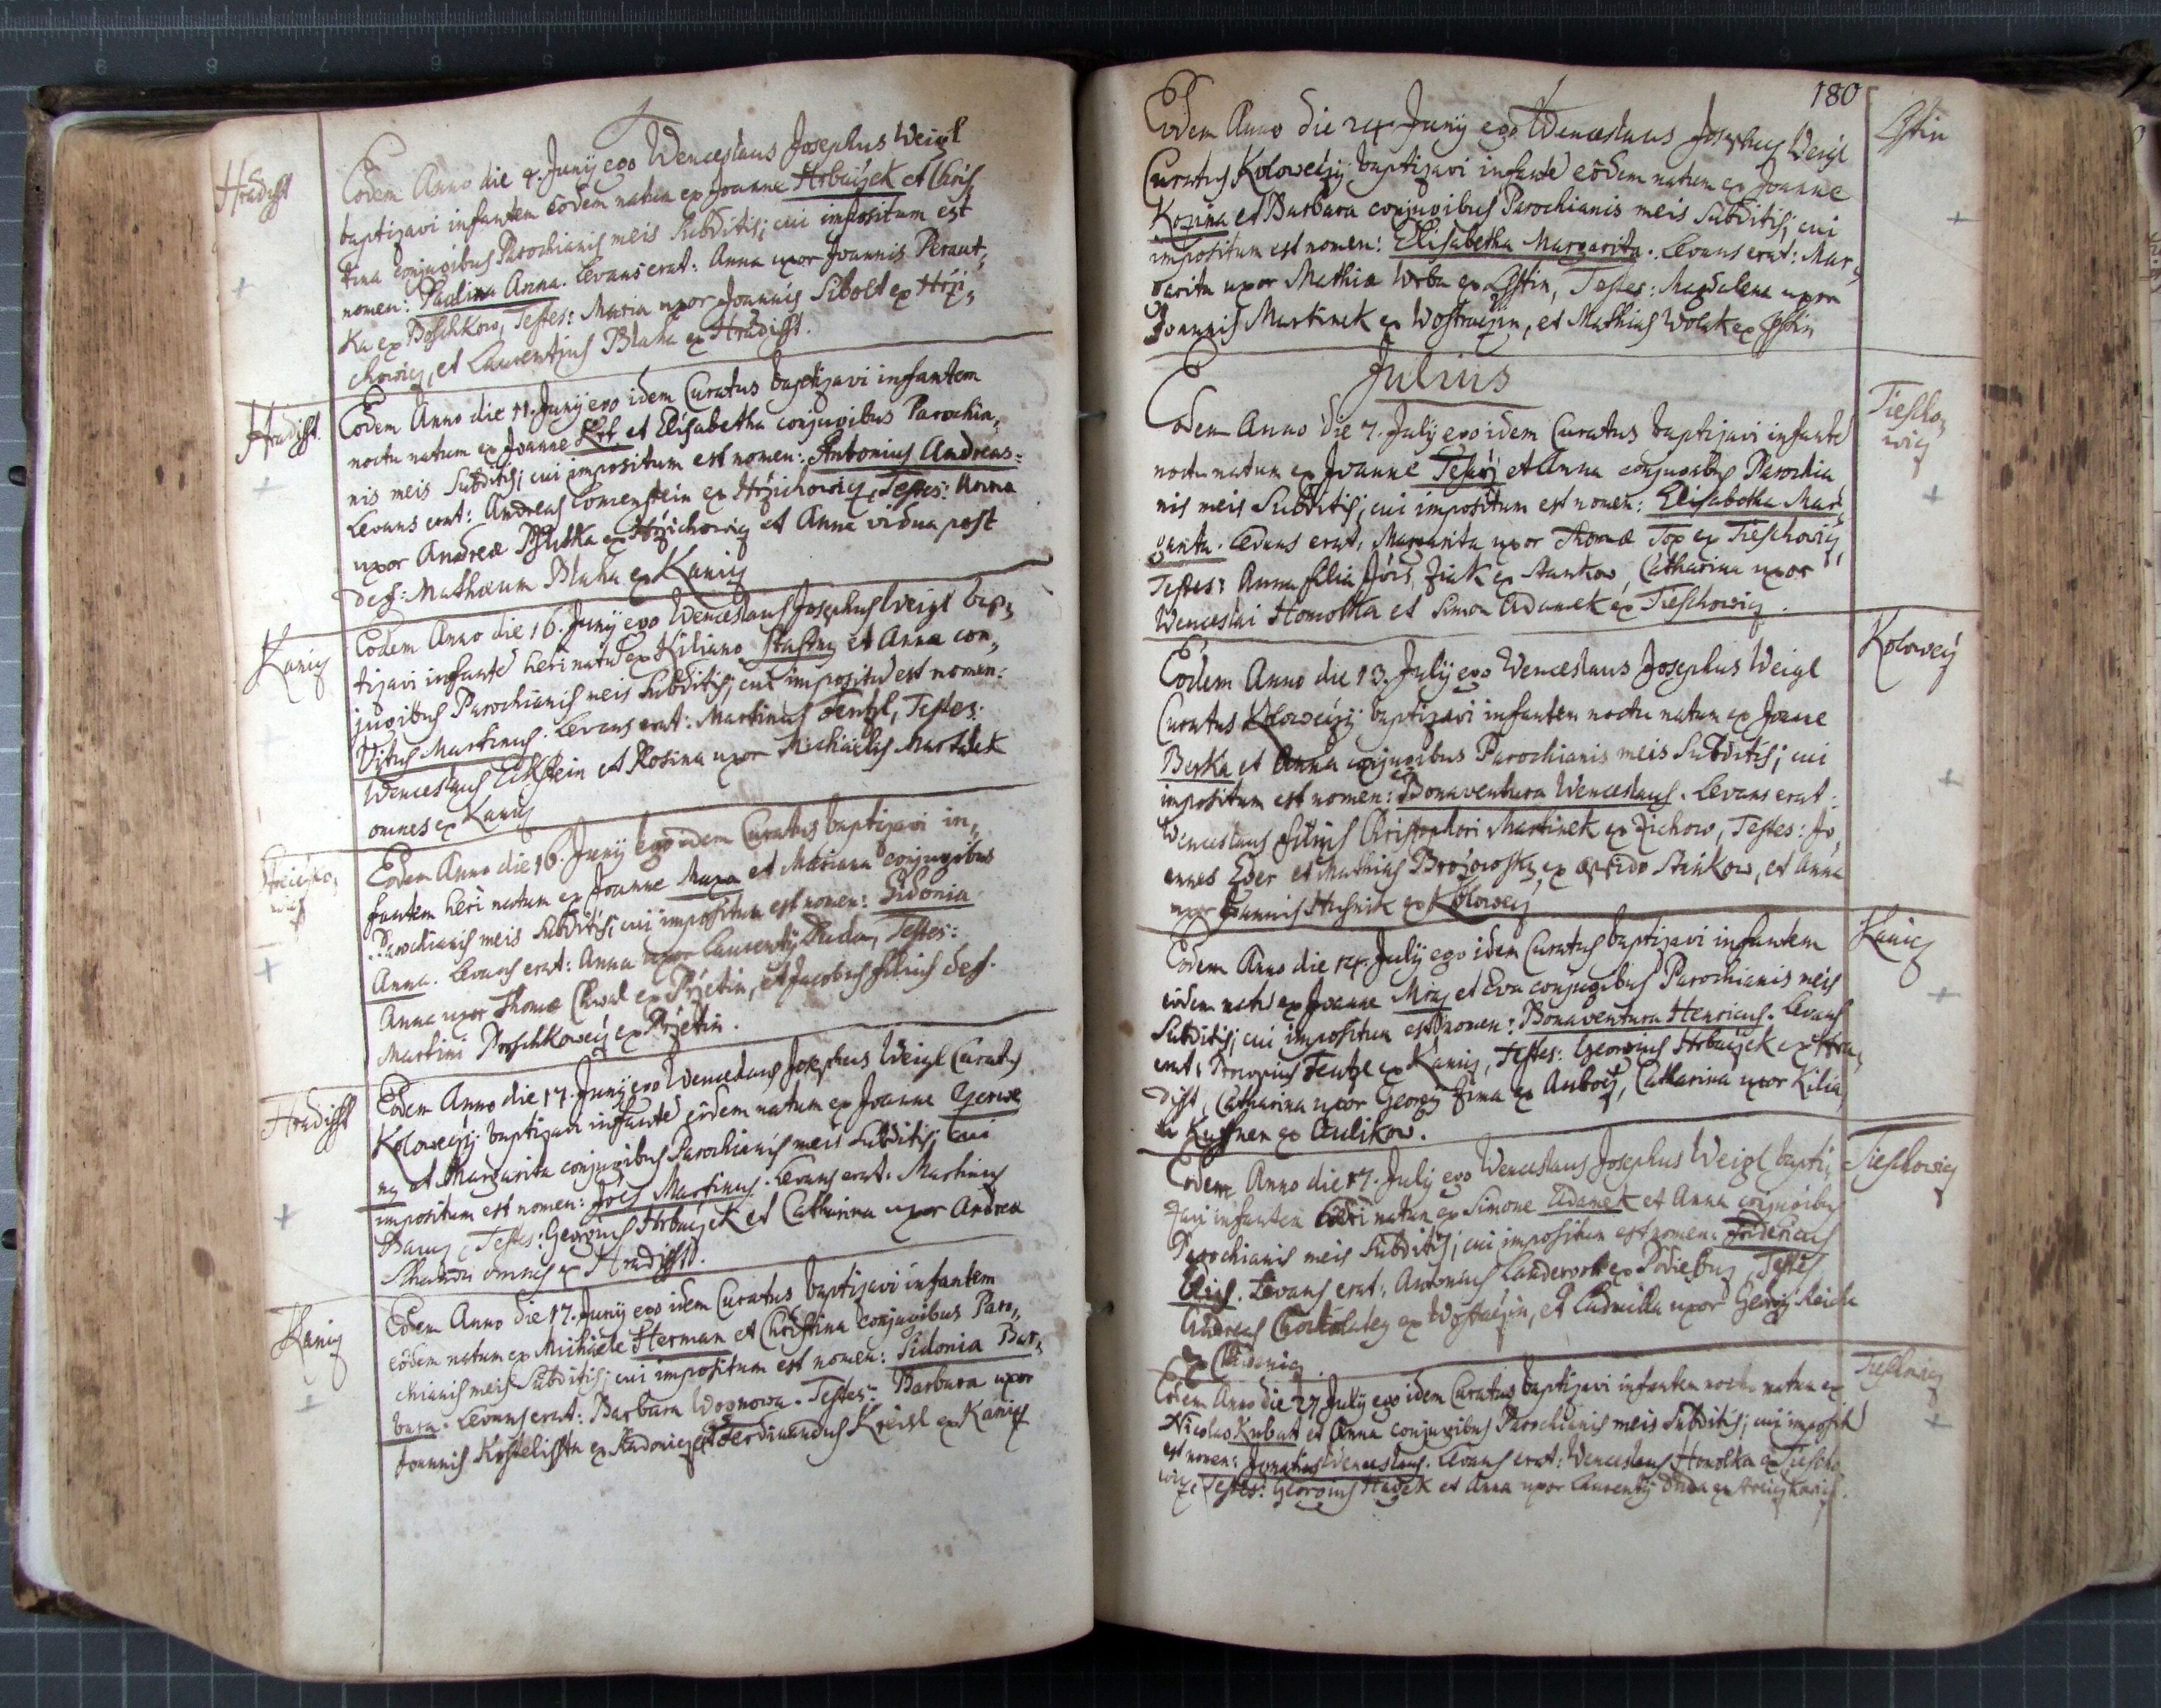 Hradisst
Eodem Anno die 4. Junÿ ego Wenceslaus Josephus Weigl
baptizavi infantem eodem natum ex Joanne Hrbaczek et Chris„
tina conjugibus Parochianis meis Subditis; cui impositum est
nomen: Paulina Anna. Levans erat: Anna uxor Joannis Peraut„
Ka ex Boschkow, Testes: Maria uxor Joannis Sibolt ex Hrzi„
chowicz, et Laurentius Blaha ex Hradisst.
Hradisst.
Eodem Anno die 11. Junÿ ego idem Curatus baptizavi infantem
noctu natum ex Joanne et Elisabetha conjugibus Parochia„
nis meis Subditis; cui impositum est nomen: Antonius Andreas.
Levans erat: Andreas ex Hrzichowicz, Testes: Anna
uxor Andreæ ex Hrzichowicz et Anna vidua post
def: Mathæum Blaha ex Kanicz
Kanicz
Eodem Anno die 16. Junÿ ego Wenceslaus Josephus Weigl bap„
tizavi infantē heri natū ex Kiliano Stastny et Anna con„
jugibus Parochianis meis Subditis; cui impositū est nomen:
Vitus Martinus. Levans erat: Martinus Tentzl, Testes:
Wenceslaus Eckstein et Rosina uxor Michaëlis
omnes ex Kanicz
Eodem Anno die 16. Junÿ ego idem Curatus baptizavi in„
fantem heri natum ex Joanne Maxa et Mariana conjugibus
Parochianis meis Subditis; cui impositum est nomen: Sidonia
Anna. Levans erat: Anna uxor Laurentÿ Duda, Testes:
Anna uxor Thomæ Chwal ex Przetin, et Jacobus filius def.
Martini ex Przetin.
Hradisst
Eodem Anno die 17. Junÿ ego Wenceslaus Josephus Weigl Curatus
Koloweczÿ baptizavi infantē eodem natum ex Joanne Czerwe
nÿ et Margarita conjugibus Parochianis meis Subditis; cui
impositum est nomen: Joës Martinus. Levans erat: Martinus
Testes: Georgius Hrbaczek et Catharina uxor Andreæ
omnes ex Hradisst.
Kanicz
Eodem Anno die 17. Junÿ ego idem Curatus baptizavi infantem
eodem natum ex Michaële Herman et Christina conjugibus Paro„
chianis meis Subditis; cui impositum est nomen: Sidonia Bar„
bara. Levans erat: Barbara Woynowa. Testes: Barbara uxor
Joannis ex et Ferdinandus Kreisl ex Kanicz
180
Eodem Anno die 24 Junÿ ego Wenceslaus Josephus Weigl
Lstin
Curatus Koloweczÿ baptizavi infantē eōdem natum ex Joanne
Kozina et Barbara conjugibus Parochianis meis Subditis; cui
impositum est nomen: Elisabetha Margarita. Levans erat: Mar„
garita uxor Mathiæ Wrba ex Lstin, Testes: Magdalena uxor
Joannis Martinek ex et Mathias Wolak ex Lstin
Julius
Tiescho„
wicz
Eodem Anno die 7. Julÿ ego idem Curatus baptizavi infantē
noctu natum ex Joanne et Anna conjugibus Parochia
nis meis Subditis; cui impositum est nomen: Elisabetha Mar„
garita. Levans erat, Margarita uxor Thomæ Top ex Tieschowicz,
Testes: Anna filia Jois, Ziak ex Stankow, Catharina uxor
Wenceslai Homolka et Simon Adamek ex Tieschowicz.
Kolowecz
Eodem Anno die 13. Julÿ ego Wenceslaus Josephus Weigl
Curatus Koloweczÿ baptizavi infantem noctu natum ex Joanne
Berka et Anna conjugibus Parochianis meis Subditis; cui
impositum est nomen: Bonaventura Wenceslaus. Levans erat:
Wenceslaus filius Christophori Martinek ex Zichow, Testes: Jo„
annes Eder et Mathias ex oppido Stankow, et Anna
uxor Joannis Husnik ex Kolowecz
Kanicz
Eodem Anno die 14. Julÿ ego idem Curatus baptizavi infantem
eōdem natū ex Joanne Mraz et Eva conjugibus Parochianis meis
Subditis; cui impositum est nomen: Bonaventura Henricus. Levans
erat: Procopius Tentzl ex Kanicz, Testes: Georgius Hrbaczek ex Hra„
disst, Catharina uxor Georgÿ Zima ex Catharina uxor Kilia„
ni ex Aulikow.
Tieschowicz
Eodem Anno die 17. July ego Wenceslaus Josephus Weigl bapti„
zavi infantem natum ex Simone Adamek et Anna conjugibus
Parochianis meis Subditis; cui impositum est nomen: Fridericus
Levans erat: Antonius ex Testes
Andreas ex et Ludmilla uxor Georgÿ
Tieschowicz
Eodem Anno die 27 Julÿ ego idem Curatus baptizavi infantem noctu natum ex
Nicolao Kubat et Anna conjugibus Parochianis meis Subditis; cui impositū
est nomen: Ignatius Wenceslaus. Levans erat: Wenceslaus Homolka ex Tiescho
wicz, Testes: Georgius et Anna uxor Laurentÿ Duda ex